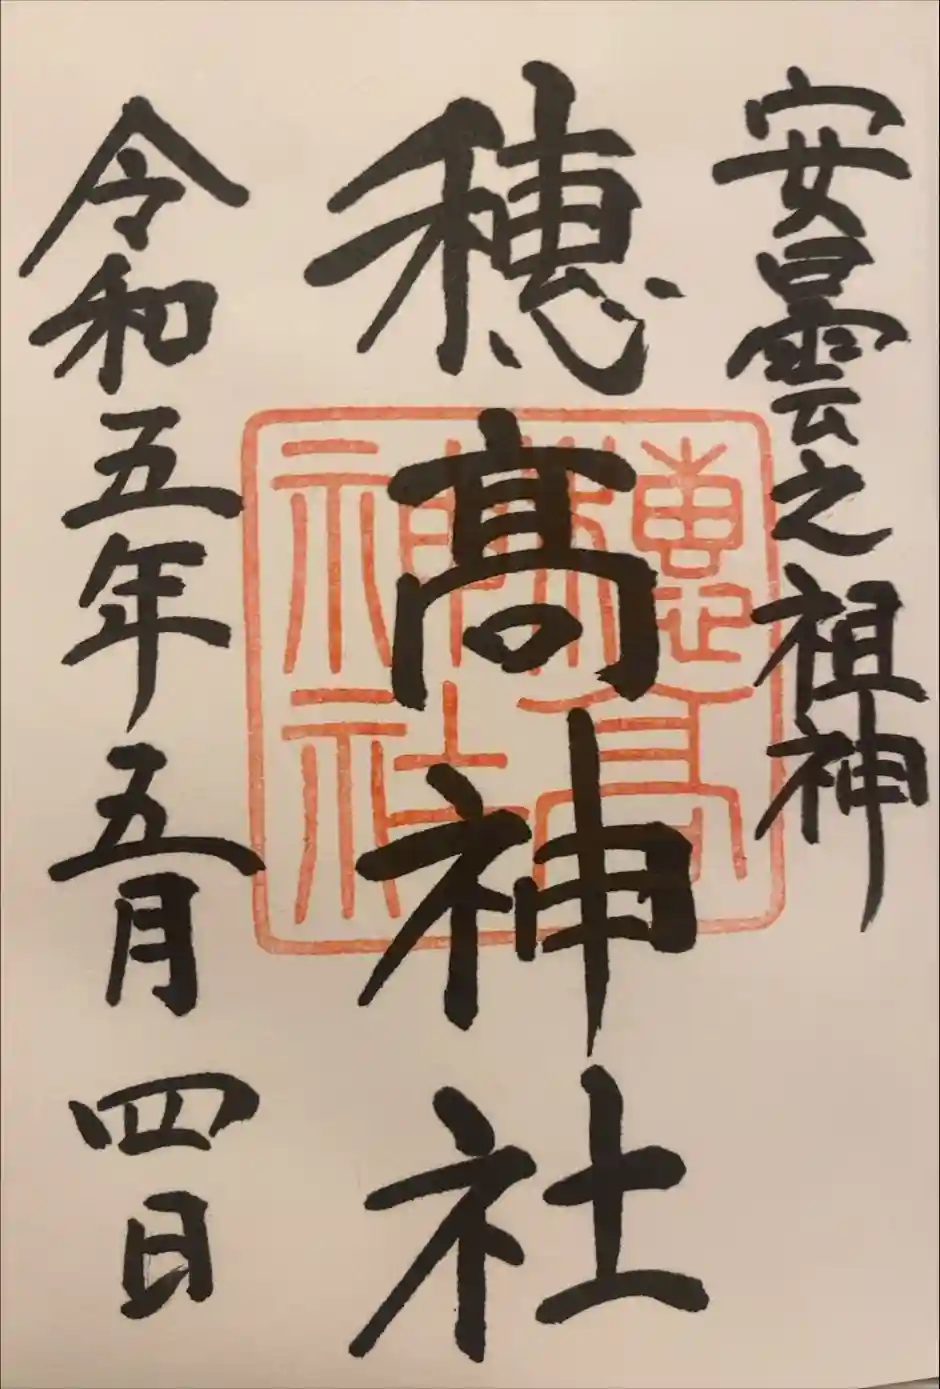 安曇之祖神
穂髙神社
穂髙神社
令和五年五月四日